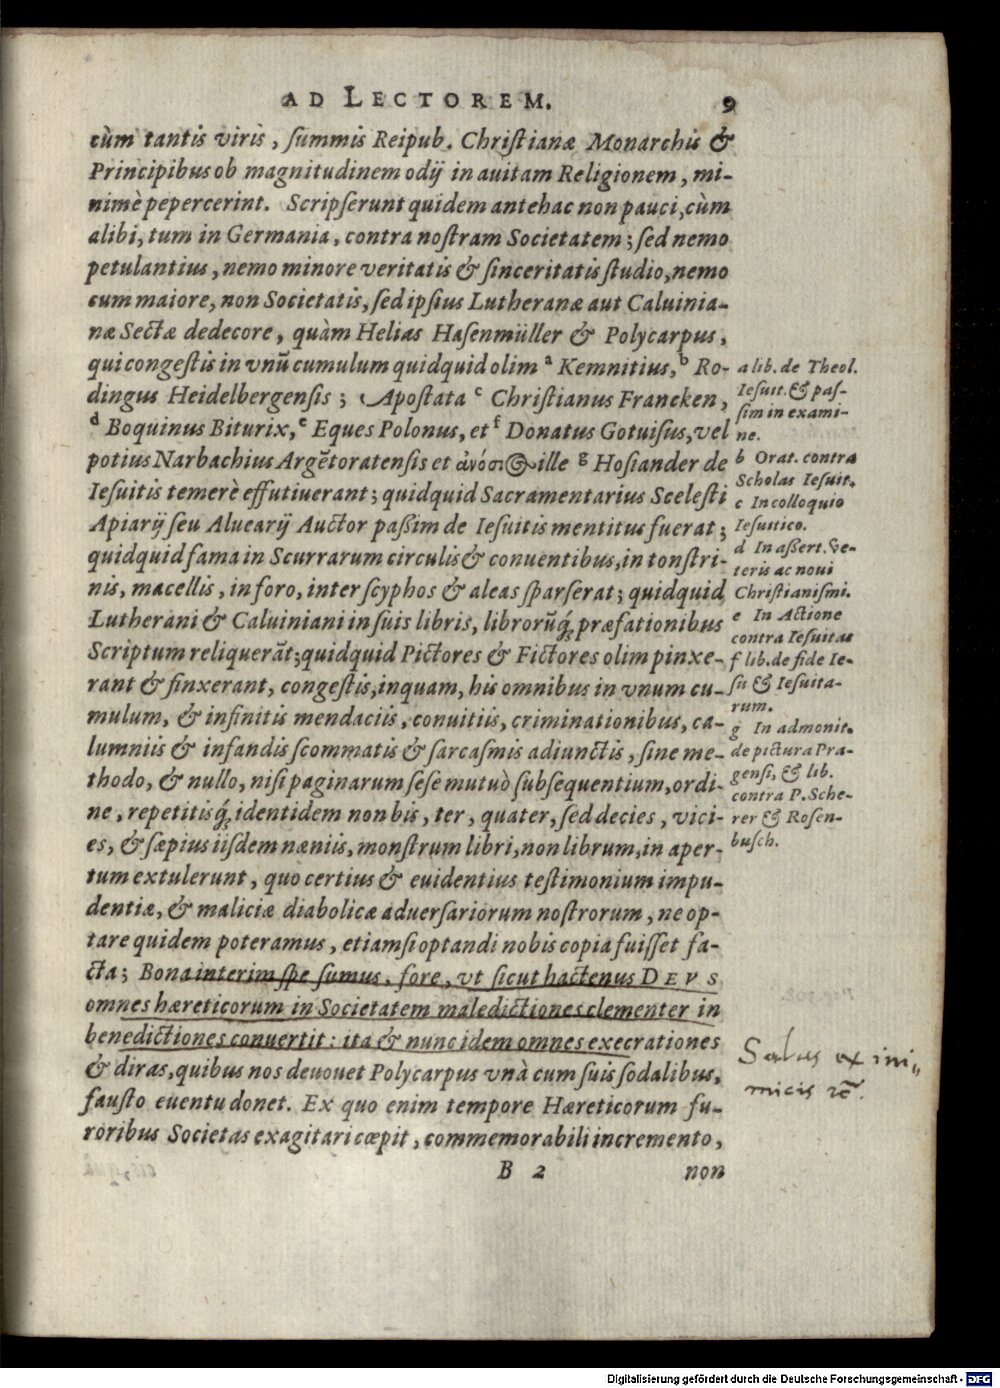 AD LECTOREM. 9
cùm tantis viris, ſummis Reipub. Chriſtianæ Monarchis &
Principibus ob magnitudinem odij in auitam Religionem, mi-
nimè pepercerint. Scripſerunt quidem antehac non pauci, cùm
alibi, tum in Germania, contra noſtram Societatem; ſed nemo
petulantius, nemo minore veritatis & ſinceritatis ſtudio, nemo
cum maiore, non Societatis, ſed ipſius Lutheranæ aut Caluinia-
næ Sectæ dedecore, quàm Helias Haſenmüller & Polycarpus,
qui congeſtis in vnũ cumulum quidquid olim a Kemnitius, b Ro-
dingus Heidelbergenſis; Apoſtata c Chriſtianus Francken,
d Boquinus Biturix, e Eques Polonus, et f Donatus Gotuiſus, vel
potius Narbachius Argẽtoratenſis et ἀνόσιος ille g Hoſiander de
Ieſuitis temerè effutiuerant; quidquid Sacramentarius Sceleſti
Apiarij ſeu Aluearij Auctor paßim de Ieſuitis mentitus fuerat;
quidquid fama in Scurrarum circulis & conuentibus, in tonſtri-
nis, macellis, in foro, inter ſcyphos & aleas ſparſerat; quidquid
Lutherani & Caluiniani in ſuis libris, librorũq́; præfationibus
Scriptum reliquerãt; quidquid Pictores & Fictores olim pinxe-
rant & finxerant, congeſtis, inquam, his omnibus in vnum cu-
mulum, & infinitis mendaciis, conuitiis, criminationibus, ca-
lumniis & infandis ſcommatis & ſarcaſmis adiunctis, ſine me-
thodo, & nullo, niſi paginarum ſeſe mutuò ſubſequentium, ordi-
ne, repetitisq́; identidem non bis, ter, quater, ſed decies, vici-
es, & ſæpius iiſdem næniis, monſtrum libri, non librum, in aper-
tum extulerunt, quo certius & euidentius teſtimonium impu-
dentiæ, & maliciæ diabolicæ aduerſariorum noſtrorum, ne op-
tare quidem poteramus, etiamſi optandi nobis copia fuiſſet fa-
cta; Bona interim ſpe ſumus, fore, vt ſicut hactenus DEVS
omnes hæreticorum in Societatem maledictiones clementer in
benedictiones conuertit: ita & nunc idem omnes execrationes
& diras, quibus nos deuouet Polycarpus vnà cum ſuis ſodalibus,
fauſto euentu donet. Ex quo enim tempore Hæreticorum fu-
roribus Societas exagitari cœpit, commemorabili incremento,
B 2 non
a lib. de Theol.
Ieſuit. & paſ-
ſim in exami-
ne.
b Orat. contra
Scholas Ieſuit.
c In colloquio
Ieſuitico.
d In aßert. ve-
teris ac noui
Chriſtianiſmi.
e In Actione
contra Ieſuitas
f lib. de fide Ie-
ſu & Ieſuita-
rum.
g In admonit.
de pictura Pra-
genſi, & lib.
contra P. Sche-
rer & Roſen-
buſch.
Salus ex ini„
micis
Digitalisierung gefördert durch die Deutsche Forschungsgemeinschaft - DFG